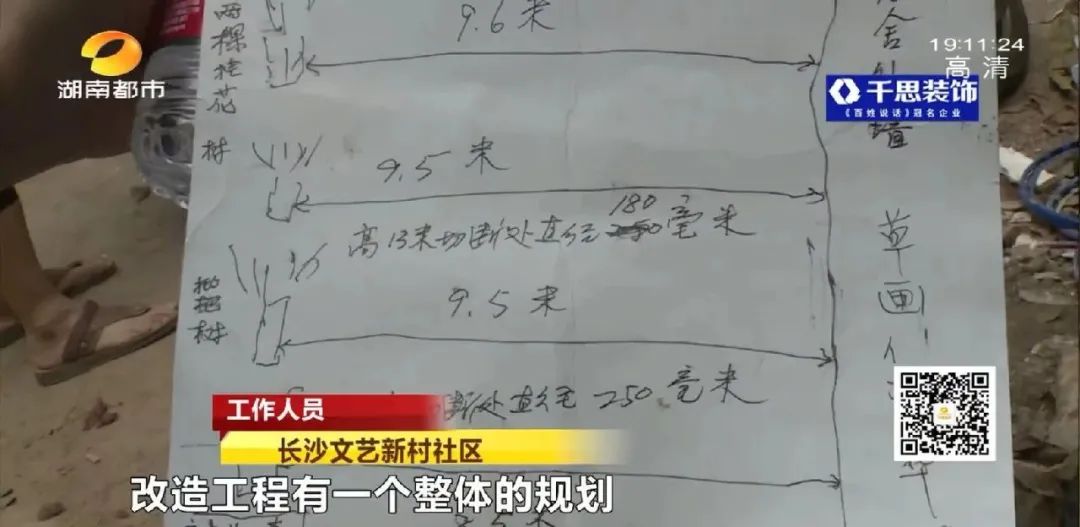 湖南都市
19:11:24
高清
千思装饰
《百姓说话》冠名企业
两棵桂花
树
9.6米
9.5米
高13米切断处直径180毫米
枇杷树
9.5米
断处直径250毫米
舍外墙
草画
工作人员
长沙文艺新村社区
改造工程有一个整体的规划